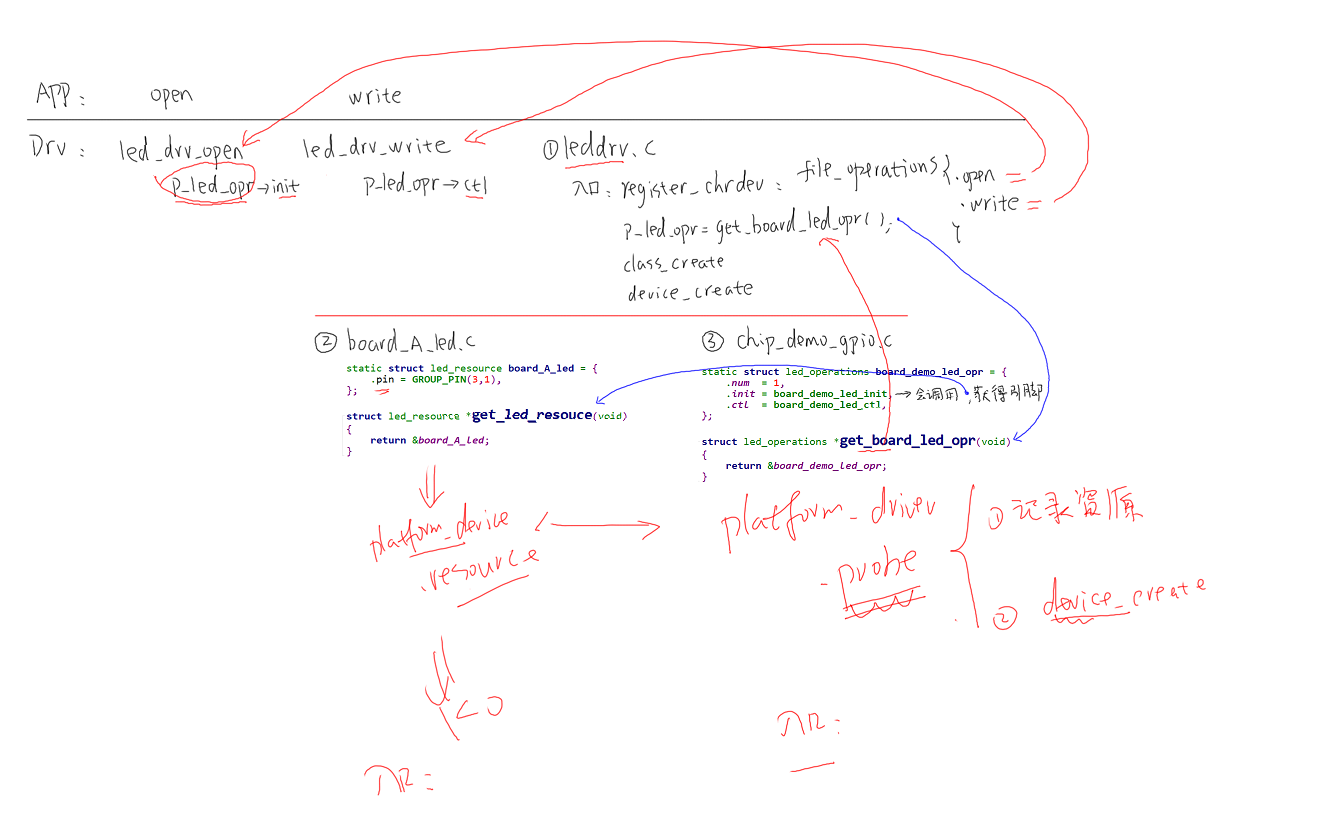 APP: open write
Drv: led_drv_open led_drv_write ①leddrv.c
p_led_opr→init p_led_opr→ctl 入口: register_chrdev: file_operations{.open =
.write =
}
p_led_opr=get_board_led_opr();
class_create
device_create
② board_A_led.c
static struct led_resource board_A_led = {
.pin = GROUP_PIN(3,1),
};
struct led_resource *get_led_resouce(void)
{
return &board_A_led;
}
③ chip_demo_gpio.c
static struct led_operations board_demo_led_opr = {
.num = 1,
.init = board_demo_led_init, →会调用 ,获得引脚
.ctl = board_demo_led_ctl,
};
struct led_operations *get_board_led_opr(void)
{
return &board_demo_led_opr;
}
platform_device
.resource
platform_driver
.probe
①记录资源
② device_create
入口:
入口: